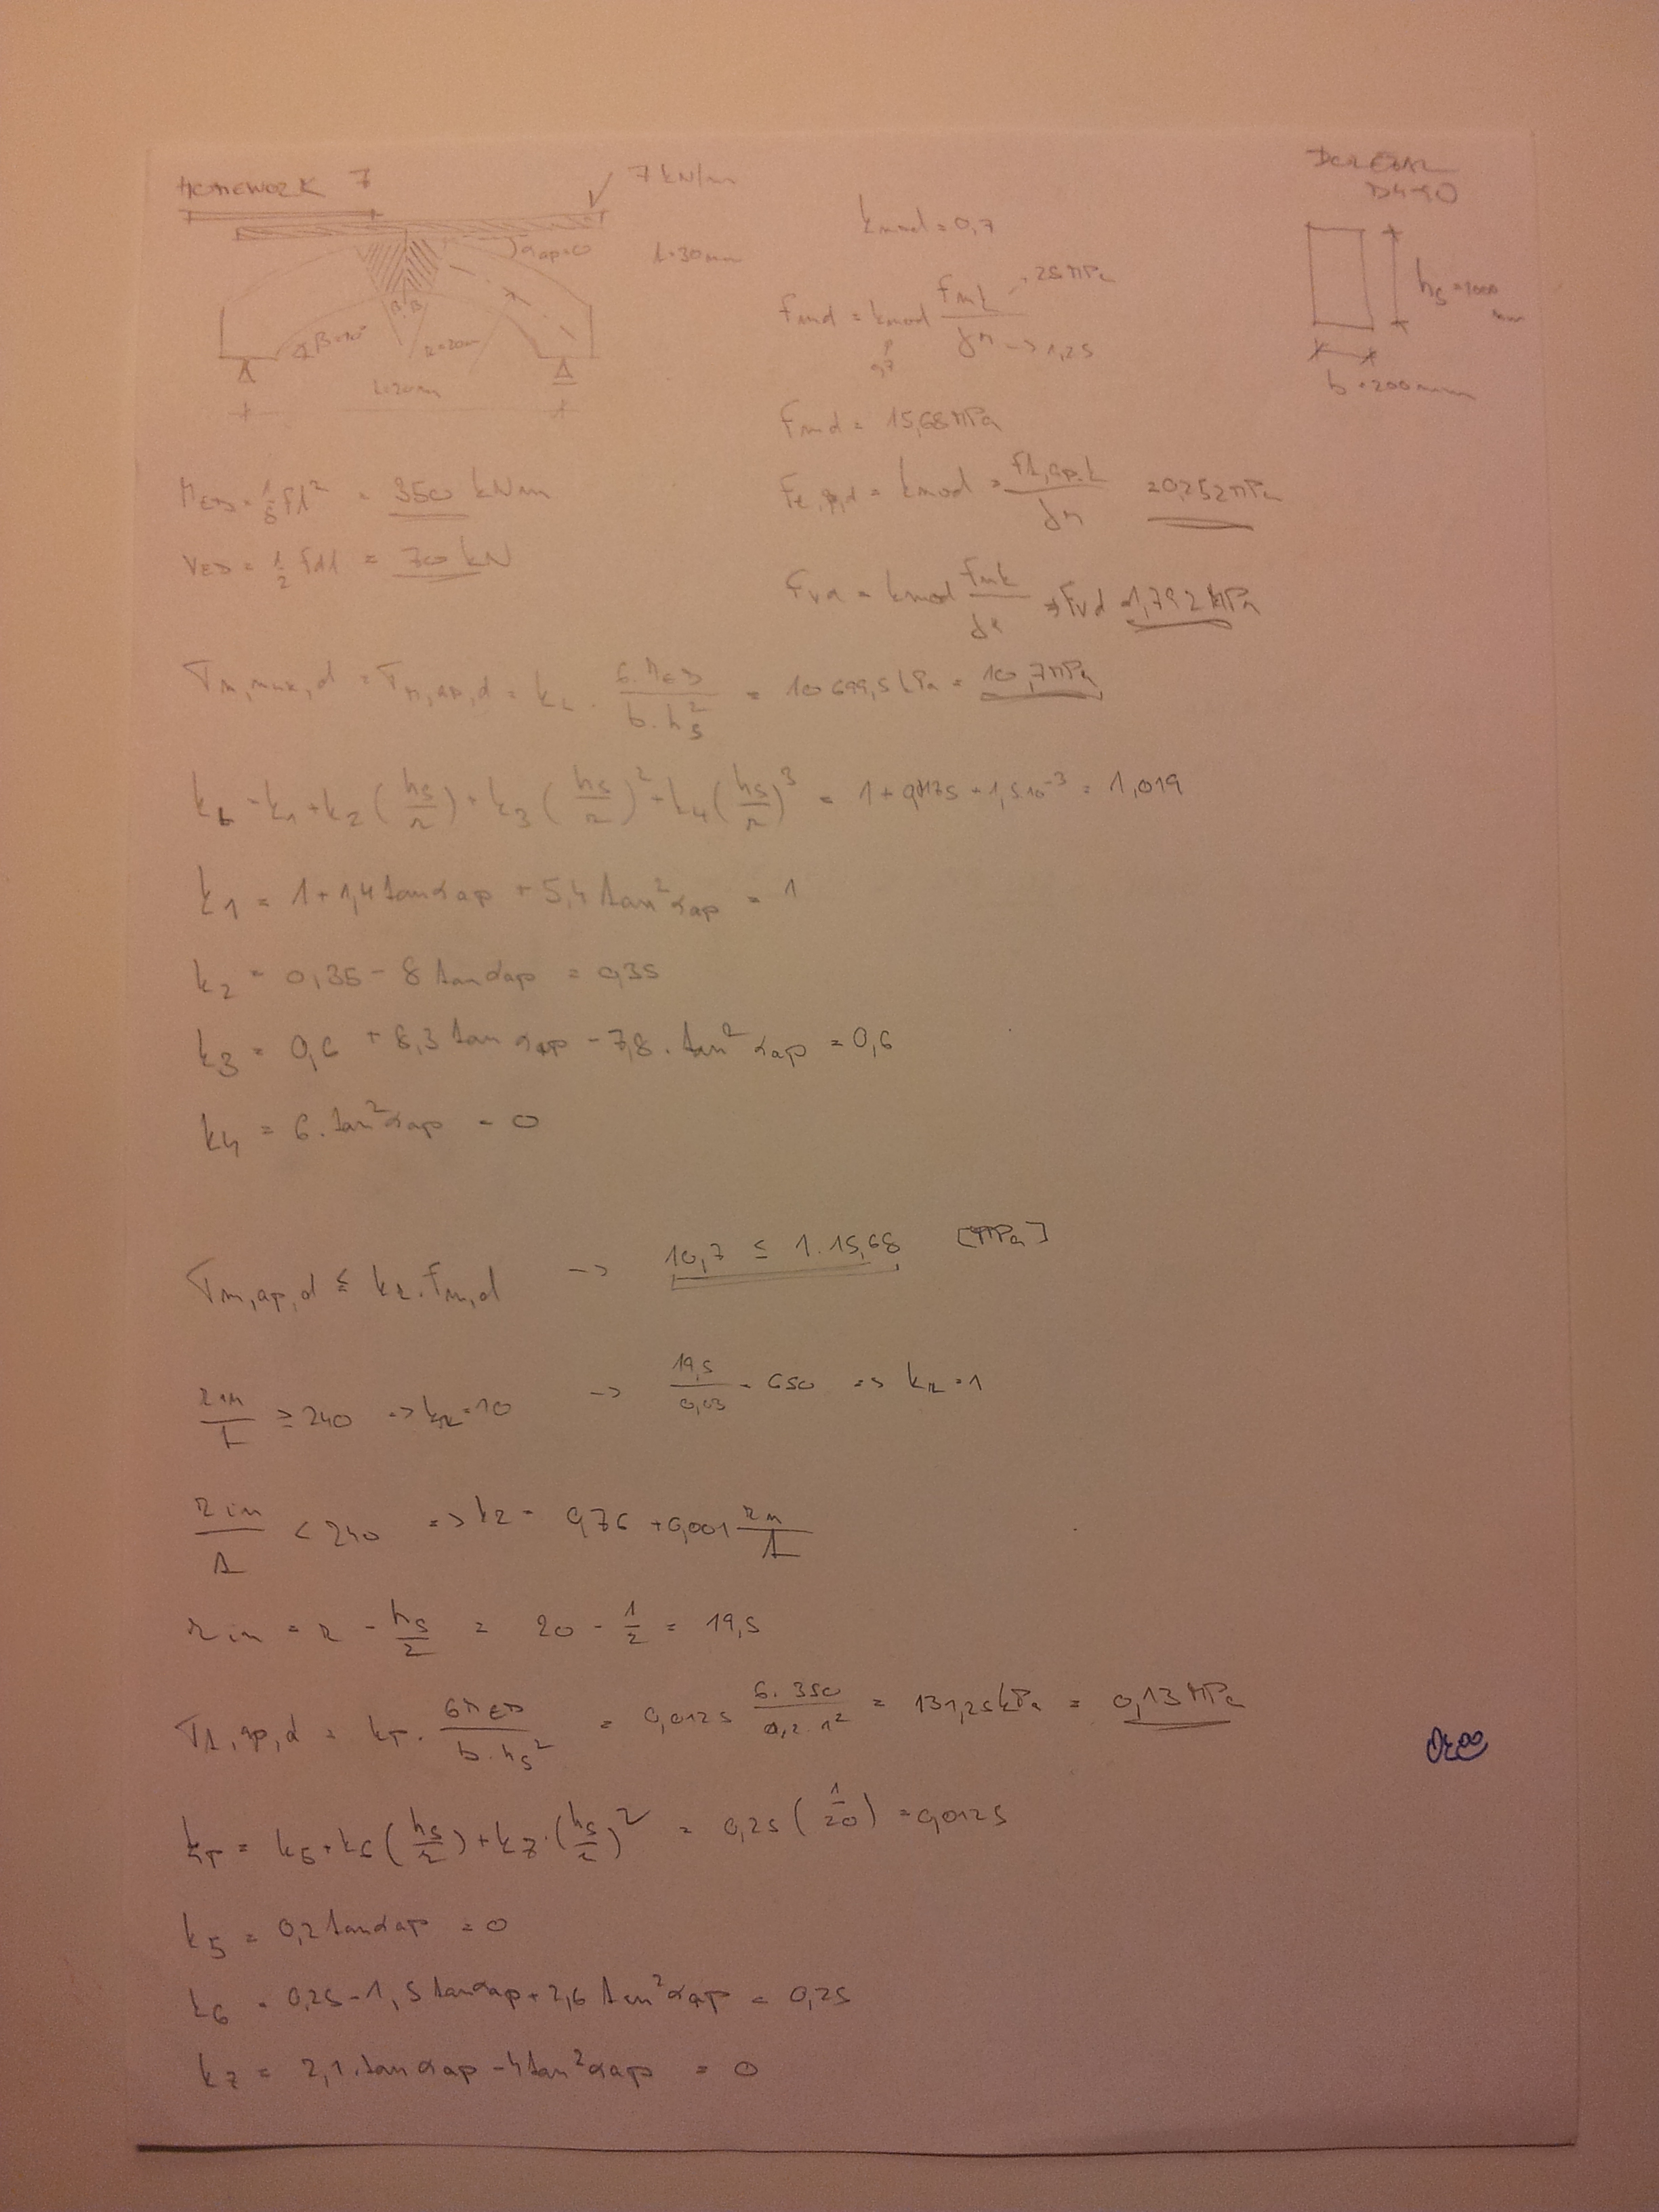 HOMEWORK 7
7 kN/m
αap=0
t=30mm
β β
β=10°
r=20m
L=20m
kmod=0,7
fmd = kmod fmk/γM
28 MPa
-> 1,25
0,7
hs=1000 mm
b=200mm
fmd = 15,68MPa
MED = 1/8 fl² = 350 kNm
ft,90,d = kmod = ft,90,k/γM = 0,252MPa
VED = 1/2 fdl = 70 kN
fvd = kmod fmk/γM => fvd = 1,792 MPa
σm,max,d = σm,ap,d = kL · 6·MED/b·hs² = 10699,5 kPa = 10,7MPa
kL = k1 + k2 (hs/r) + k3 (hs/r)² + k4 (hs/r)³ = 1+0,0175+1,5·10⁻³ = 1,019
k1 = 1+1,4 tanαap + 5,4 tan²αap = 1
k2 = 0,35 - 8 tanαap = 0,35
k3 = 0,6 + 8,3 tan αap - 7,8 · tan² αap = 0,6
k4 = 6 · tan²αap = 0
σm,ap,d ≤ kr · fm,d -> 10,7 ≤ 1 · 15,68 [MPa]
rin/t ≥ 240 => kr=10 -> 19,5/0,03 = 650 => kr=1
rin/t < 240 => kr = 0,76 + 0,001 rin/t
rin = r - hs/2 = 20 - 1/2 = 19,5
σt,90,d = kp · 6MED/b·hs² = 0,0125 6·350/0,2·1² = 131,25kPa = 0,13MPa
kp = k5 + k6 (hs/r) + k7 · (hs/r)² = 0,25 (1/20) = 0,0125
k5 = 0,2 tanαap = 0
k6 = 0,25 - 1,5 tanαap + 2,6 tan²αap = 0,25
k7 = 2,1 · tan αap - 4 tan²αap = 0